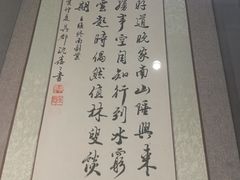 好道晚家南山陲興來
勝事空自知行到水窮
雲起時偶然值林叟談
期 王維終南別業